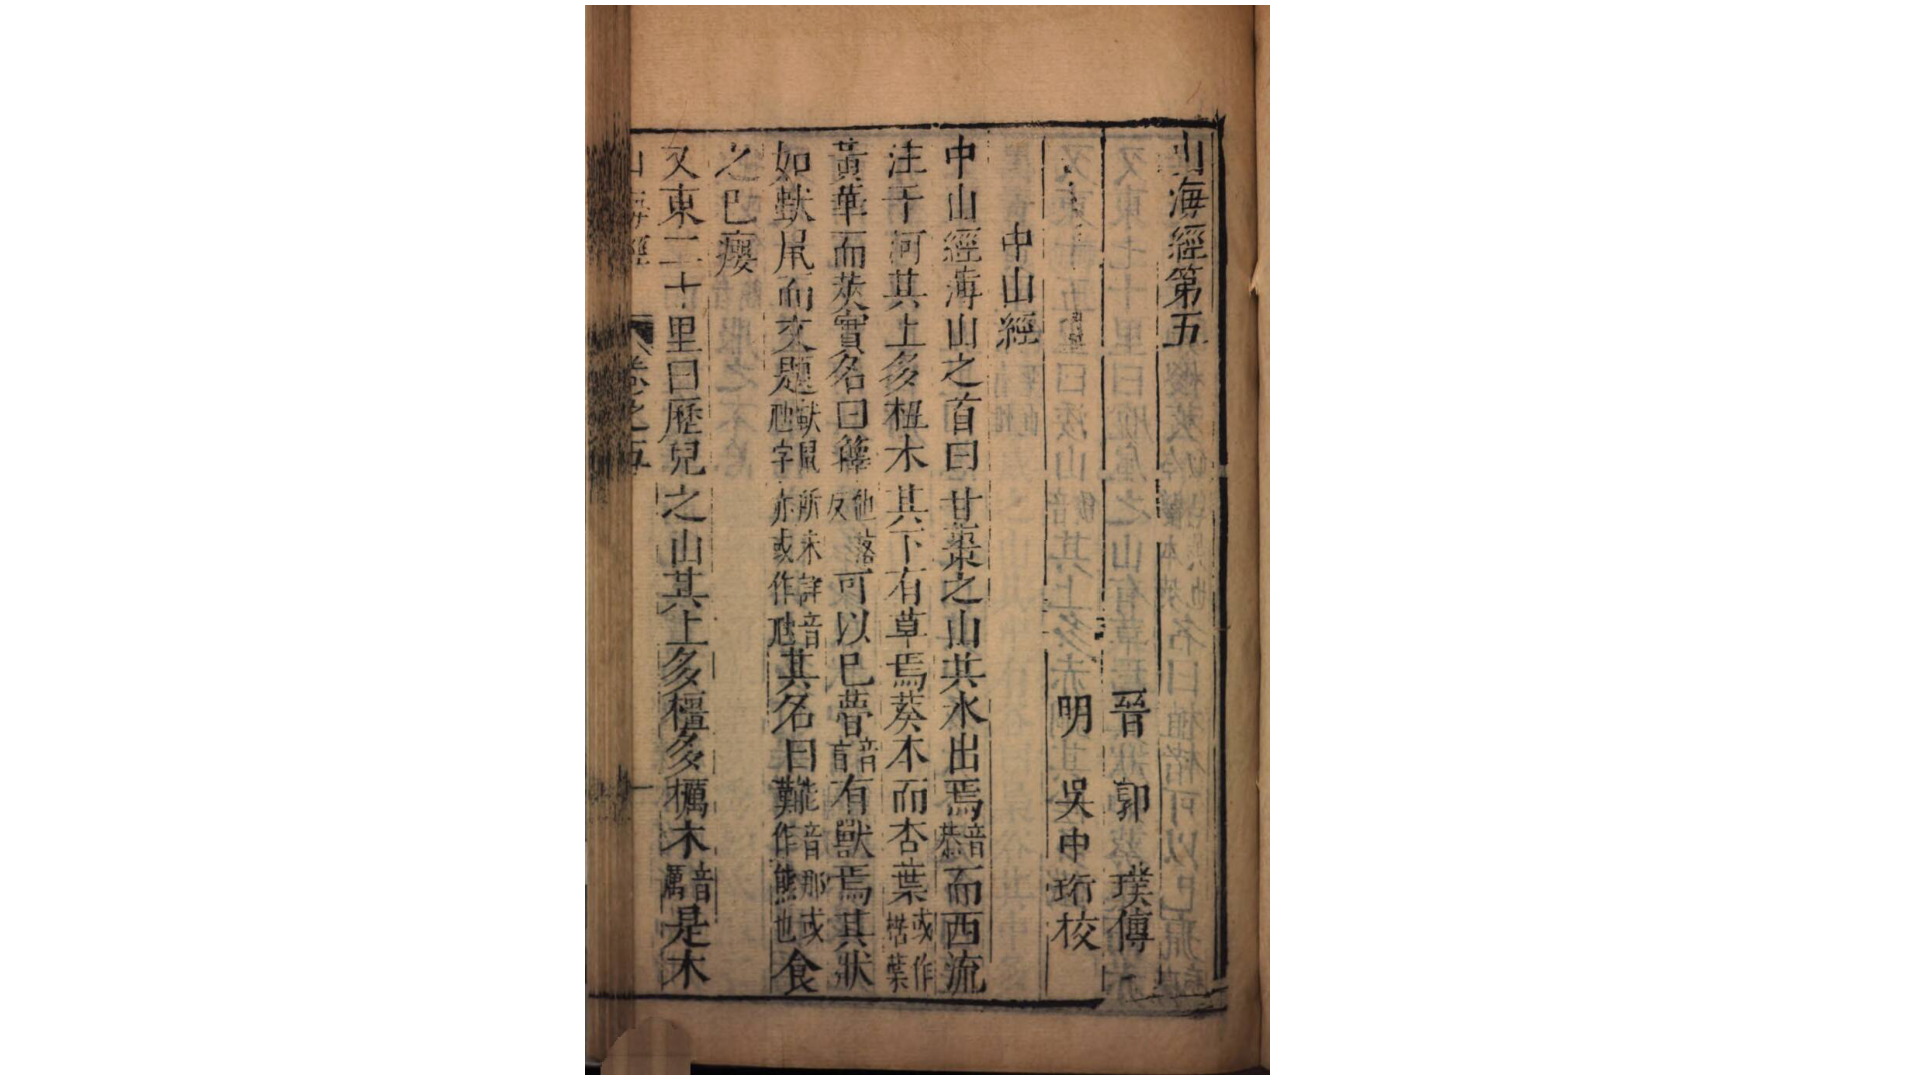 山海經第五
晉 郭 璞傳
明 吳中珩校
中山經
中山經薄山之首曰甘棗之山共水出焉音恭而西流
注于河其上多杻木其下有草焉葵本而杏葉或作楛葉
黃華而莢實名曰籜他落反可以已瞢音盲有獸焉其狀
如鼠而文題鼠所未詳音虺字亦或作虺其名曰音那或作熊也食
之已癭
又東二十里曰歷兒之山其上多橿多櫔木音厲是木
山海經 卷之五 一